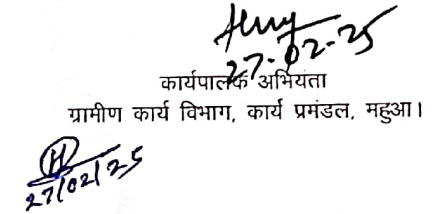 27-02-25
कार्यपालक अभियंता
ग्रामीण कार्य विभाग, कार्य प्रमंडल, महुआ।
27/02/25